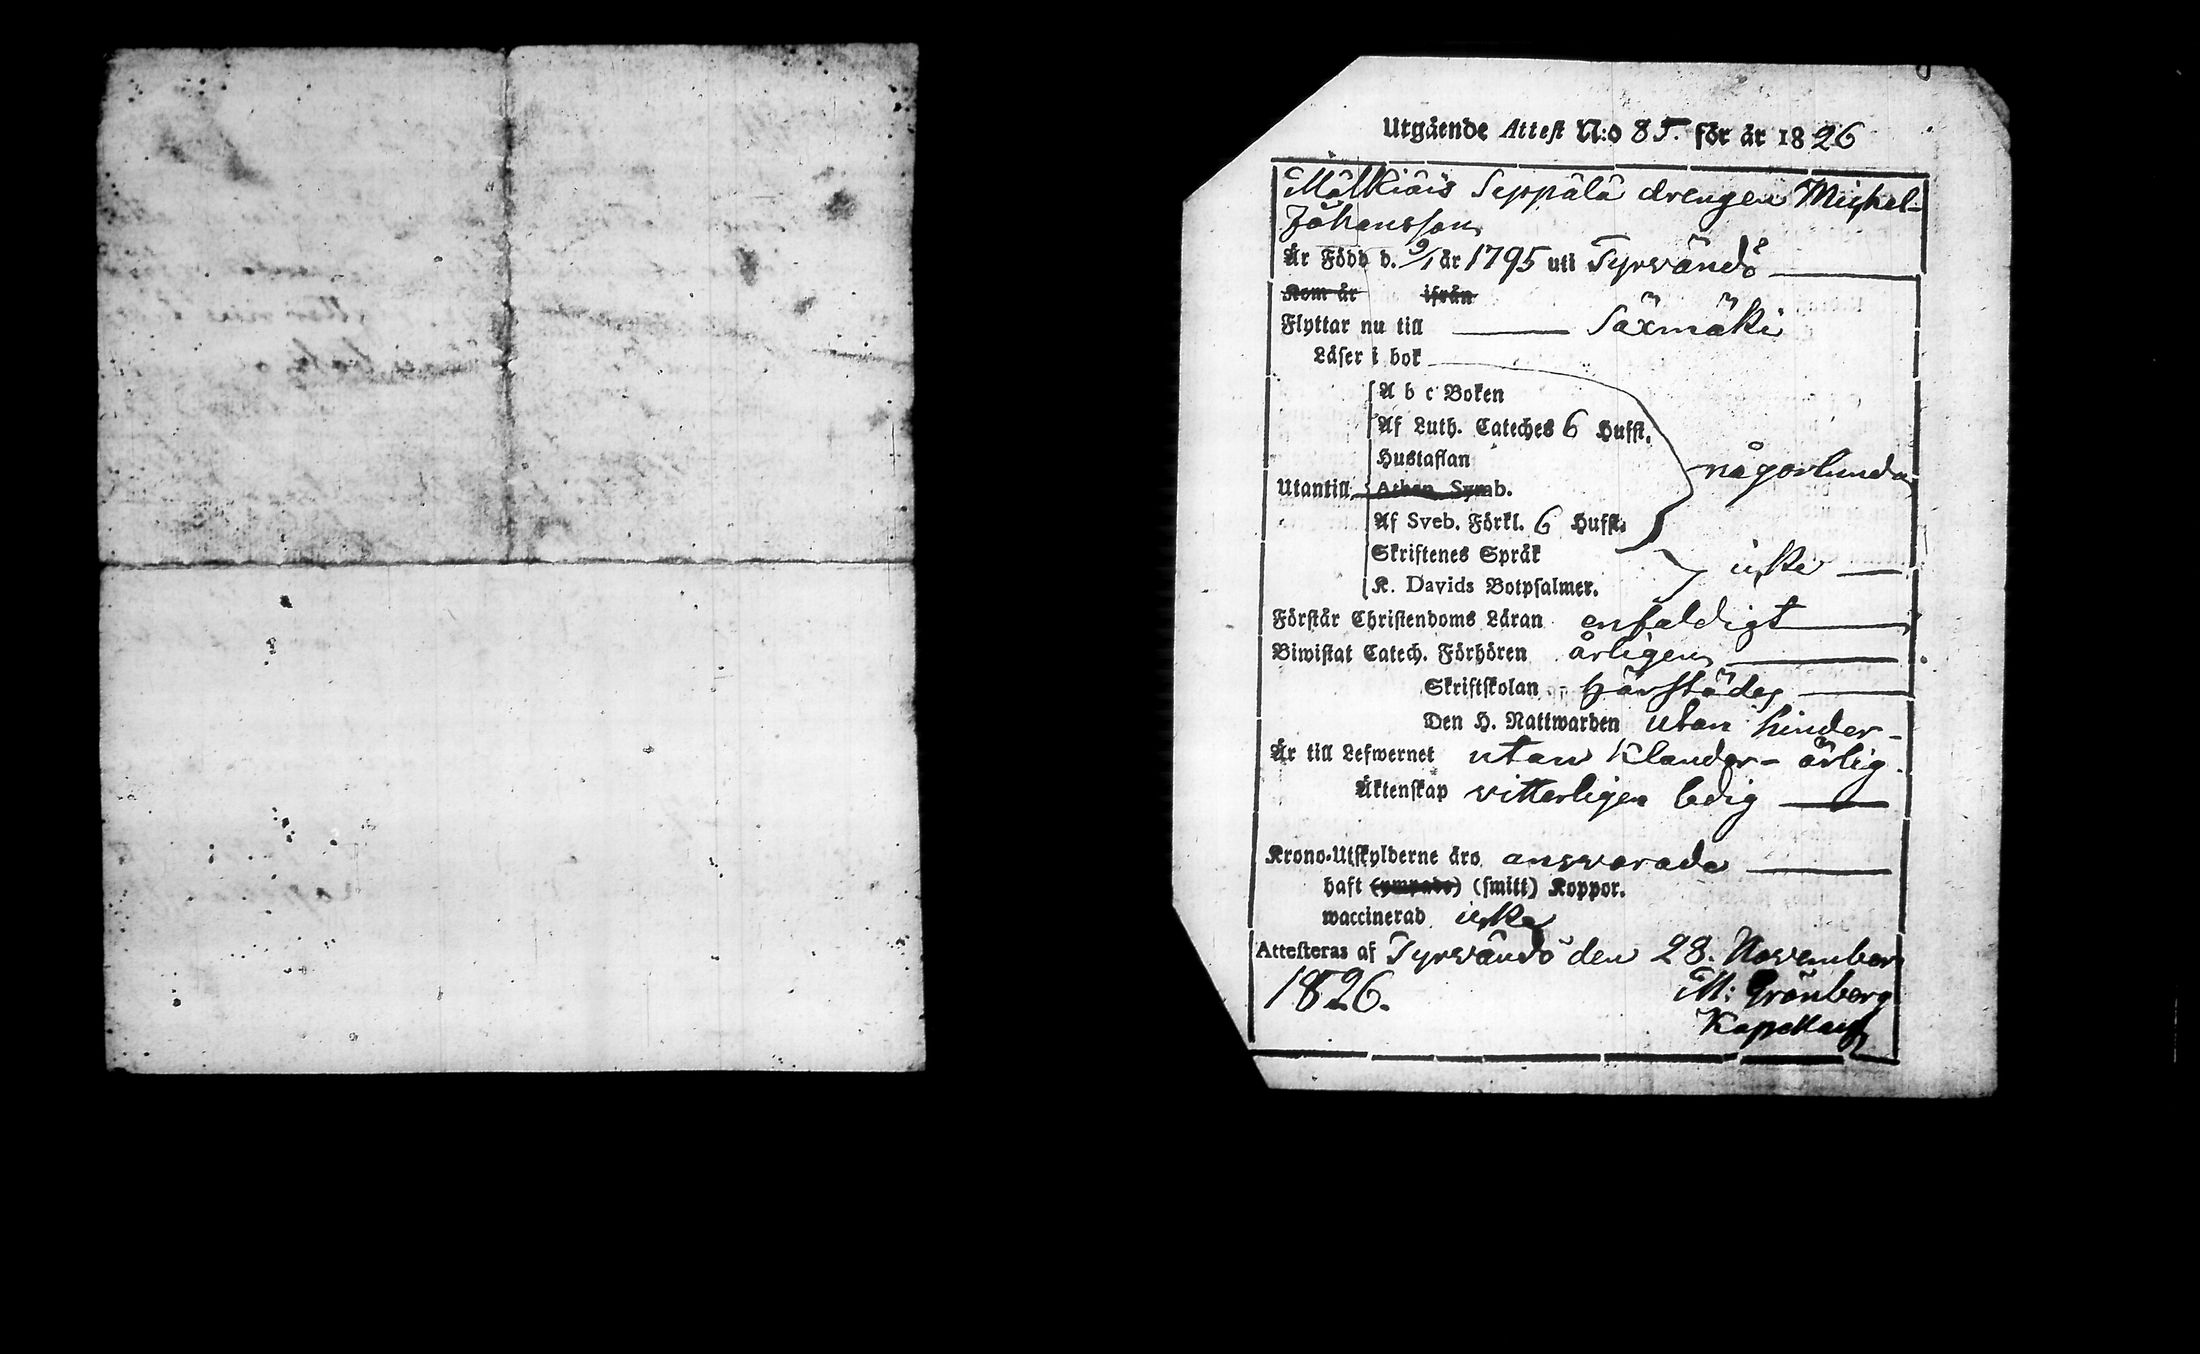 Utgående Attest N:o 85. för år 1826
Mälkiäis Seppälä drengen Michel
Johansson
Är Född d. 9/1 år 1795 uti Tyrvändö
Kom år ifrån
Flyttar nu till Säxmäki
Läser i bok
A b c Boken
Af Luth. Cateches 6 Hufst.
Hustaflan
någorlunda
Utantill Athan. Symb.
Af Sveb. Förkl. 6 Hufst.
Skriftenes Språk
icke
K. Davids Botpsalmer.
Förstår Christendoms Läran enfaldigt
Biwistat Catech. Förhören årligen
Skriftskolan härstädes
Den H. Nattwarden utan hinder
Är till Lefwernet utan klander - ärlig
Äktenskap vitterligen ledig
Krono-Utskylderne äro ansvarade
haft (ympade) (smitt) Koppor.
waccinerad icke
Attesteras af Tyrvändö den 28. November
1826. M: Grönberg
Kapellan